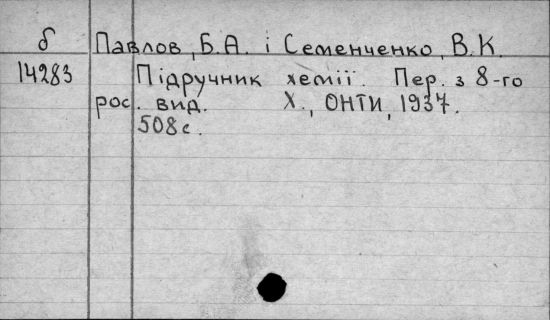 б Павлов, Б.А. і Семенченко, В.К.
14283 Підручник хемії. Пер. з 8-го
рос. вид. Х., ОНТИ, 1937.
508с.